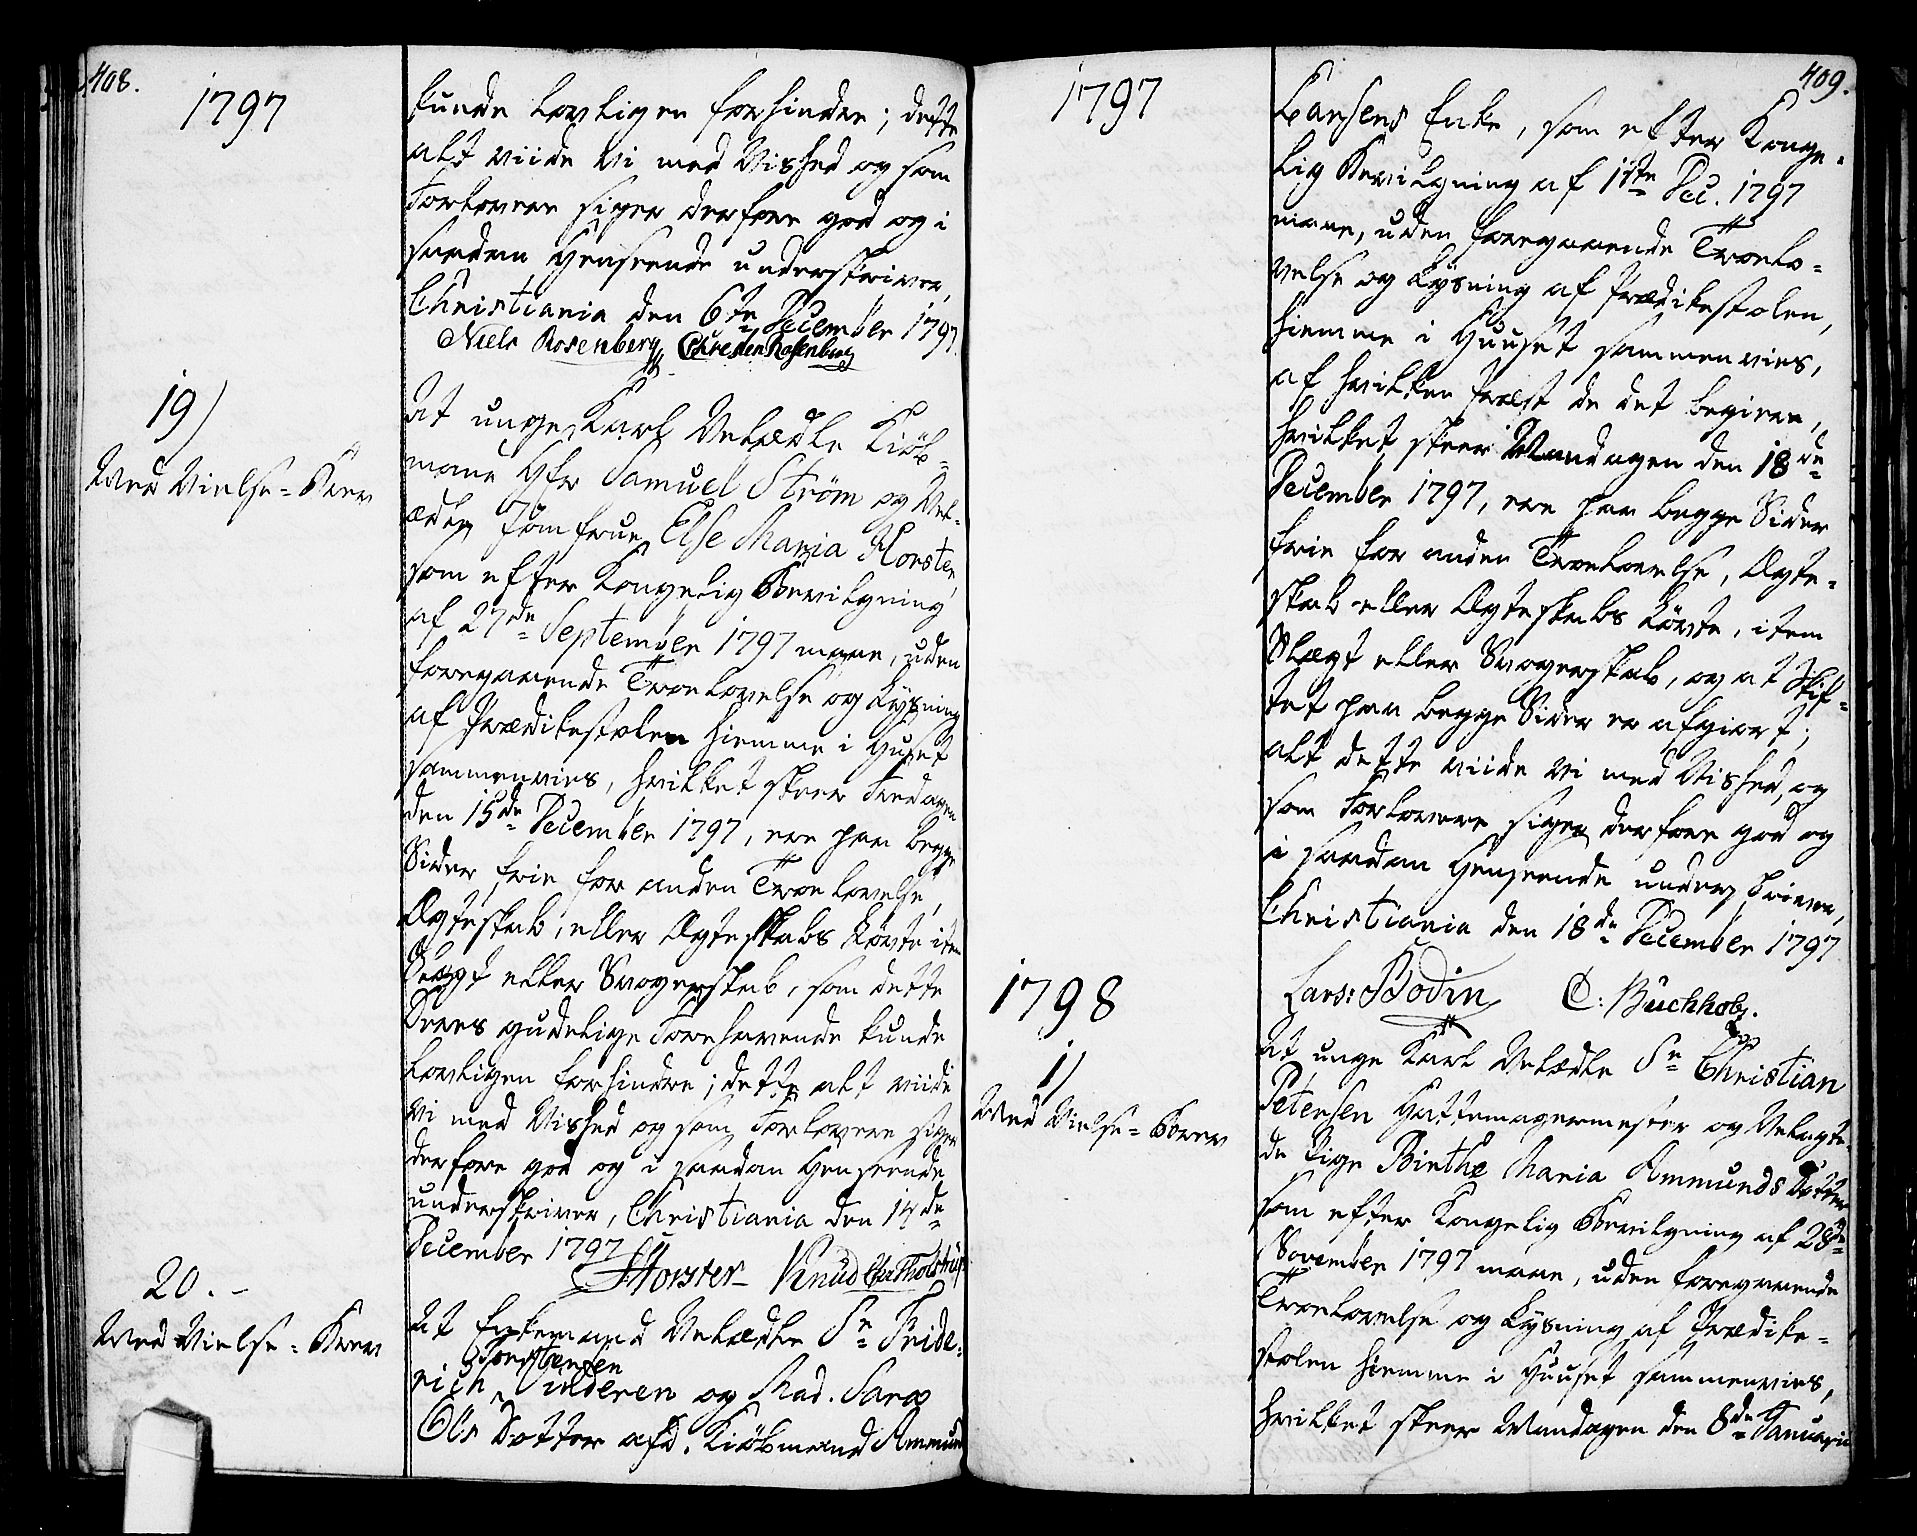 408.
1797
kunde lovligen forhindre; dette
alt viide Vi med Vished og som
Forlovere siger derfore god og i
saadan Henseende underskriver,
Christiania den 6te December 1797.
Niels Rosenberg Christen Rosenberg
19)
Med Vielse-Brev
At unge Karl Velædle Kiøb-
mand Hr Samuel Strøm og Vel-
ædle Jomfrue Else Maria Horster,
som efter Kongelig Bevilgning
af 27de September 1797 maae, uden
foregaaende Troelovelse og Lysning
af Prædikestolen hiemme i Huset
sammenvies, hvilket skeer Fredagen
den 15de December 1797, ere paa begge
Sider frie for anden Troelovelse,
Ægteskab, eller Ægteskabs Løvte item
Slægt eller Svogerskab, som dette
Deres gudelige Forehavende kunde
lovligen forhindre; dette alt viide
Vi med Vished og som Forlovere siger
derfore god og i saadan Henseende
underskriver, Christiania den 14de
December 1797
Horster Knud
20.
Med Vielse-Brev
At Enkemand Velædle Sr Fride-
Torstensen
rich Vinderen og Mad. Sara
Ols Dotter afd. Kiøbmand Ammund
409.
1797
Larsens Enke, som efter Konge-
lig Bevilgning af 1ste Dec. 1797
maae, uden foregaaende Troelo-
velse og Lysning af Prædikestolen,
hiemme i Huuset sammenvies,
af hvilken Præst de det begierer,
hvilket skeer Mandagen den 18de
December 1797, ere paa begge Sider
frie for anden Troelovelse, Ægte-
skab eller Ægteskabs Løvte, item
Slægt eller Svogerskab, og at Skif-
tet paa begge Sider er afgiort;
alt dette viide Vi med Vished, og
som Forlovere siger derfore god og
i saadan Henseende underskriver,
Christiania den 18de December 1797
Lars: Bodin C: Buchholz.
1798
1)
Med Vielse-Brev
At unge Karl Velædle Sr Christian
Petersen Hattemagermester og Velagte-
de Pige Birthe Maria Ammunds Dotter
som efter Kongelig Bevilgning af 28de
November 1797 maae, uden foregaaende
Troelovelse og Lysning af Prædike-
stolen hiemme i Huuset sammenvies,
hvilket skeer Mandagen den 8de Januarii